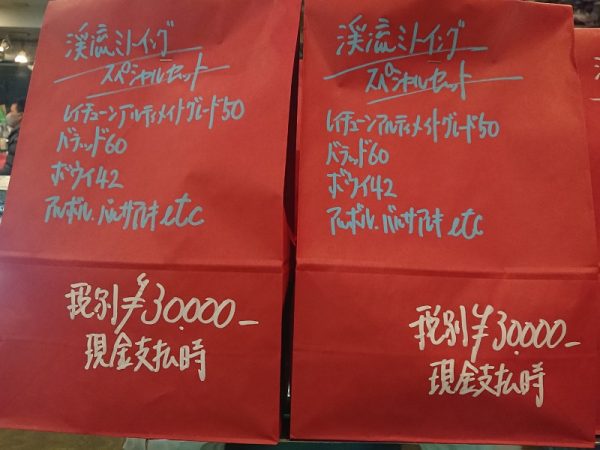 渓流ミノーイング
スペシャルセット
レイチューンアルティメイトグレード50
バラッド60
ボウイ42
アルボル.バルサアルキetc
税別¥30.000-
現金支払時
渓流ミノーイング
スペシャルセット
レイチューンアルティメイトグレード50
バラッド60
ボウイ42
アルボル.バルサアルキetc
税別¥30.000-
現金支払時